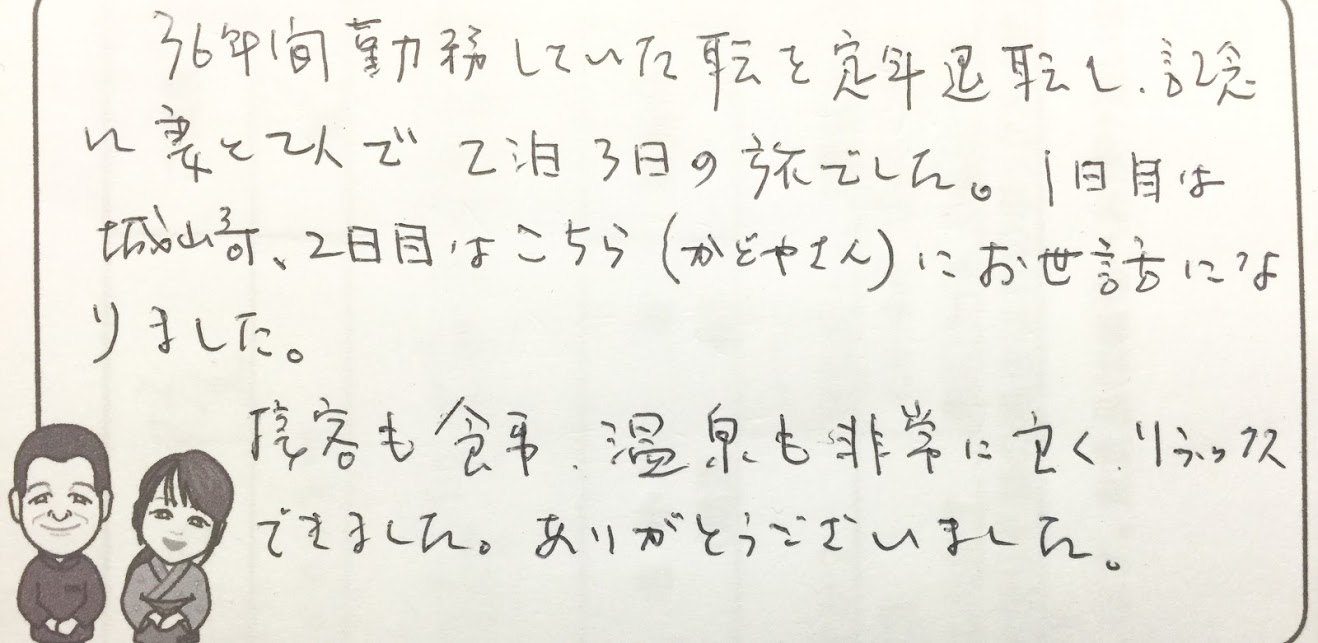 36年間勤務していた転を定年退転し、記念
に妻と2人で 2泊3日の旅でした。1日目は
城崎、2日目はこちら(かどやさん)にお世話にな
りました。
接客も食事、温泉も非常に宜く、リラックス
できました。ありがとうございました。